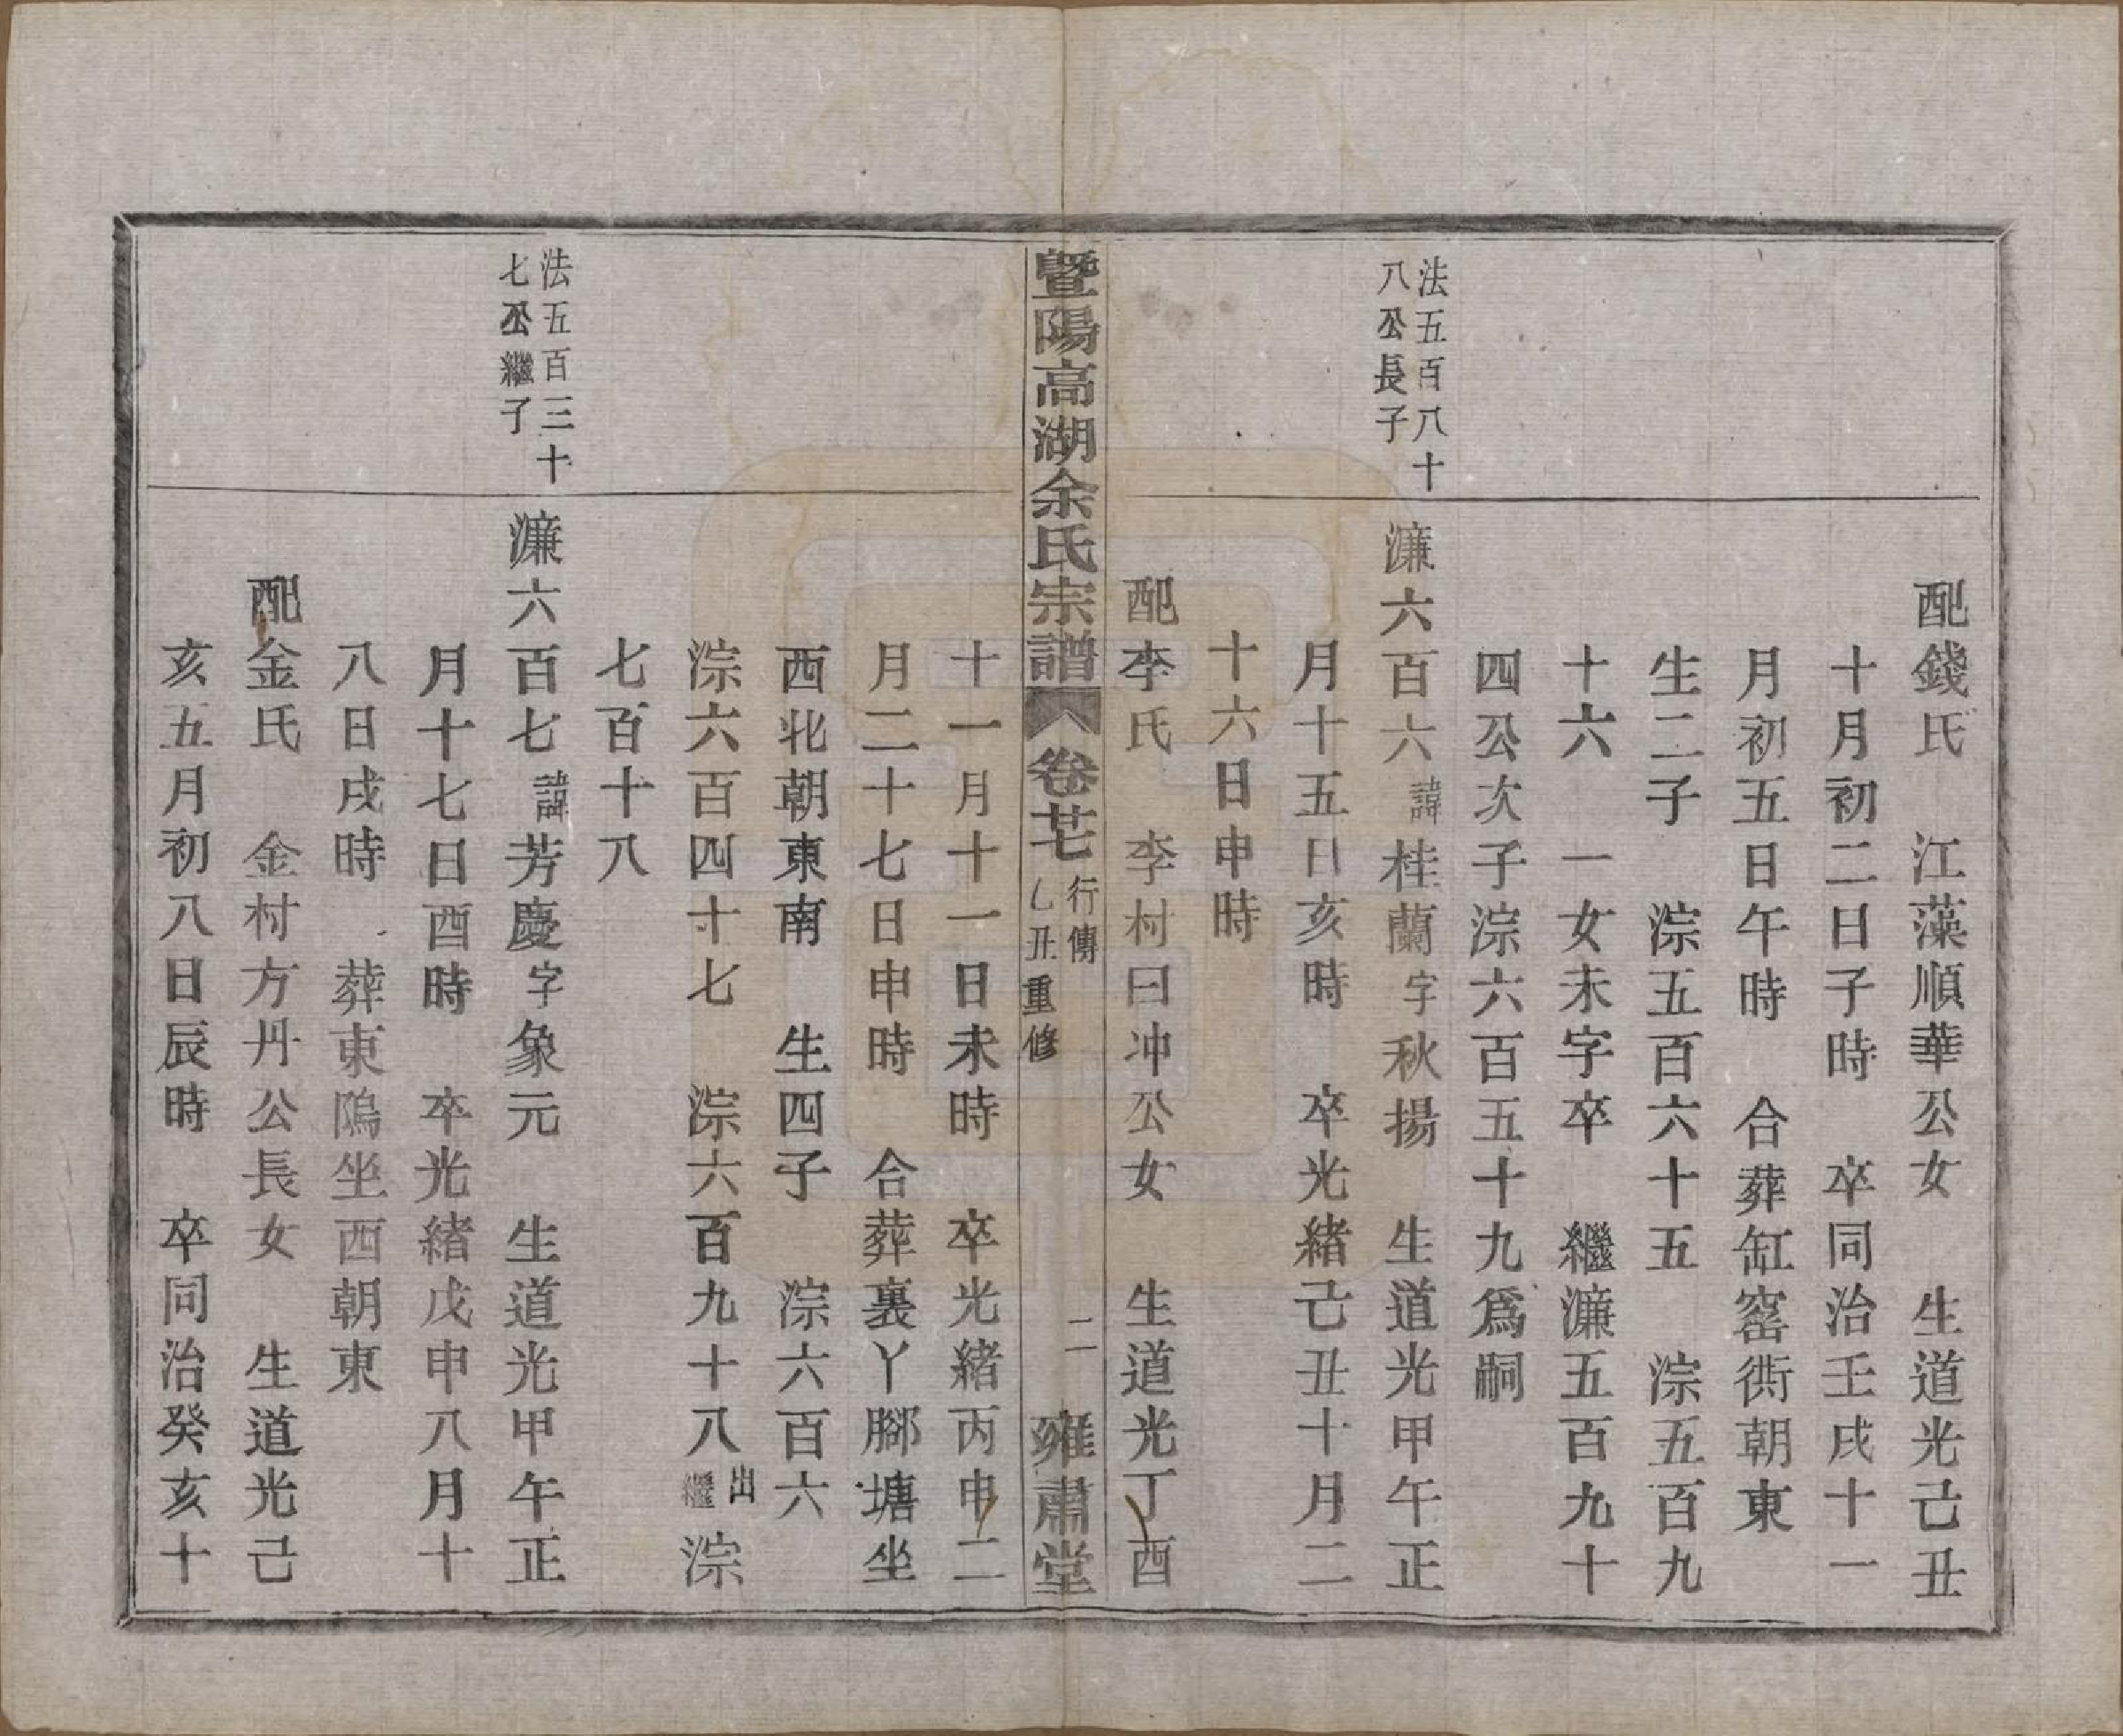 配錢氏　江藻順華公女　生道光己丑
十月初二日子時　卒同治壬戌十一
月初五日午時　合葬缸窰衖朝東
生二子　淙五百六十五　淙五百九
十六　一女未字卒　繼濂五百九十
四公次子淙六百五十九爲嗣
法五百八十
八公長子
濂六百六諱桂蘭字秋揚　生道光甲午正
月十五日亥時　卒光緒己丑十月二
十六日申時
配李氏　李村曰冲公女　生道光丁酉
暨陽高湖余氏宗譜　卷廿七　行傳　乙丑重修　二　雍肅堂
十一月十一日未時　卒光緒丙申二
月二十七日申時　合葬裏丫腳塘坐
西北朝東南　生四子　淙六百六
淙六百四十七　淙六百九十八出繼　淙
七百十八
法五百三十
七公繼子
濂六百七諱芳慶字象元　生道光甲午正
月十七日酉時　卒光緒戊申八月十
八日戌時　葬東隖坐西朝東
配金氏　金村方丹公長女　生道光己
亥五月初八日辰時　卒同治癸亥十